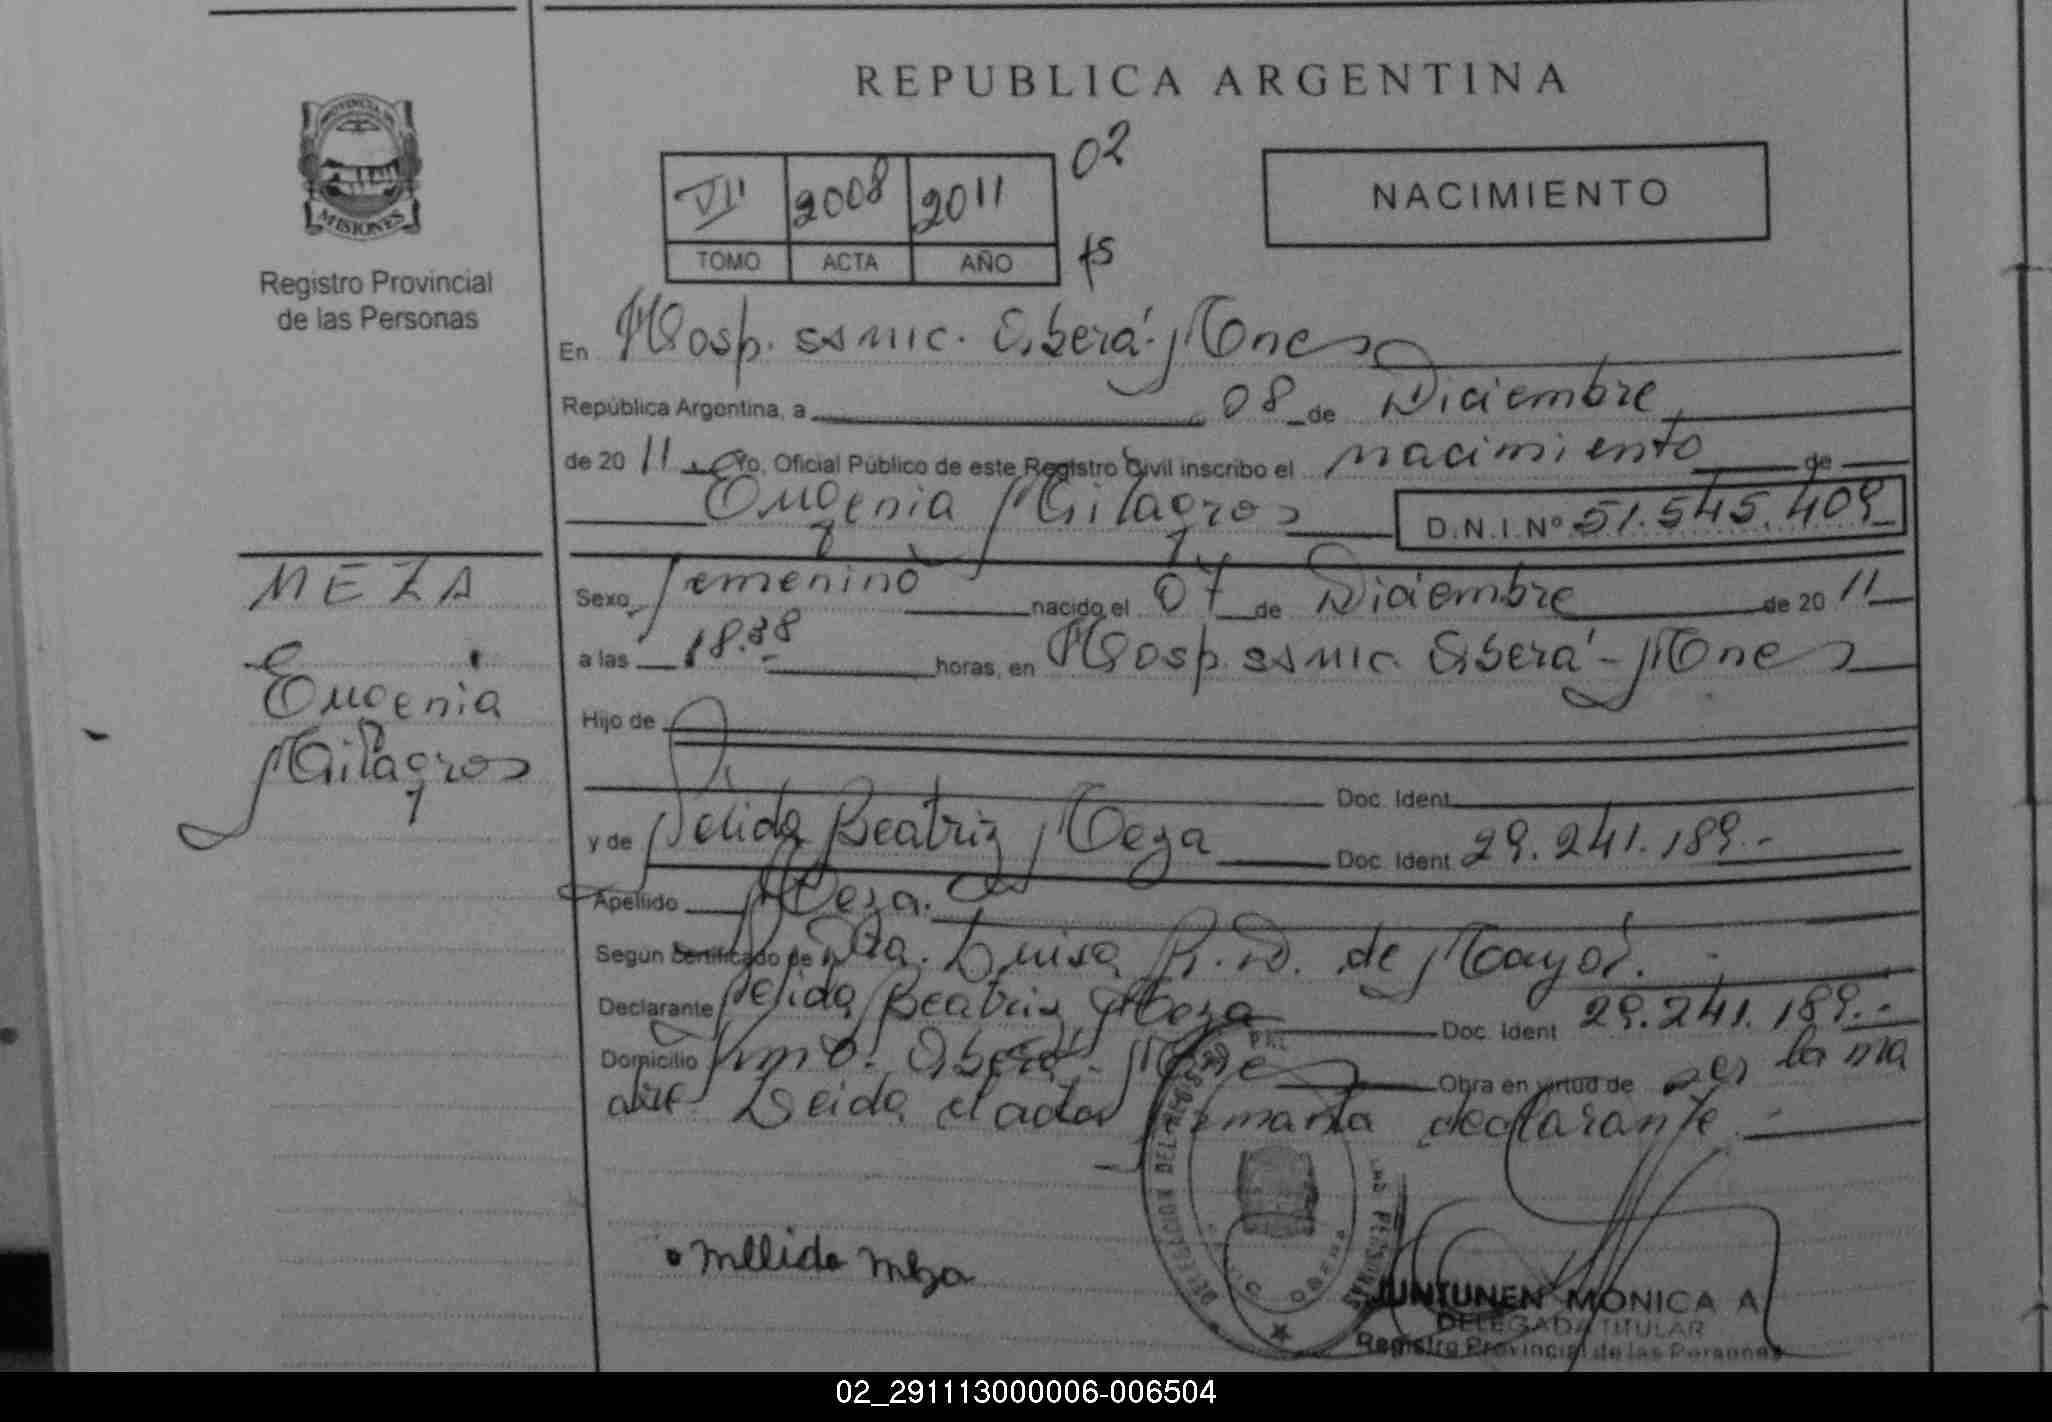 REPUBLICA ARGENTINA
PROVINCIA DE
MISIONES
Registro Provincial
de las Personas
VII 2008 2011 02
TOMO ACTA AÑO
NACIMIENTO
En Hosp. ssmic. Oberá - Mnes
República Argentina, a 08 de Diciembre
de 20 11 Yo, Oficial Público de este Registro Civil inscribo el nacimiento de
Eugenia Milagros D.N.I.Nº 51.545.409
MEZA
Eugenia
Milagros
Sexo femenino nacido el 07 de Diciembre de 20 11
a las 18.38 horas, en Hosp ssmic. Oberá - Mnes
Hijo de
Doc. Ident
y de Nélida Beatriz Meza Doc. Ident 29.241.189.-
Apellido Meza.
Según certificado de Dra. Luisa R. D. de Mayol.
Declarante Nélida Beatriz Meza Doc. Ident 29.241.189.-
Domicilio Oberá - Mnes Obra en virtud de ser la ma
dre. Leida el acta firmanla declarante.
Mellida Meza
DELEGACION DEL REGISTRO
LAS PERSONAS
OBERA
JUNTUNEN MONICA A
DELEGADA TITULAR
Registro Provincial de las Personas
02_291113000006-006504